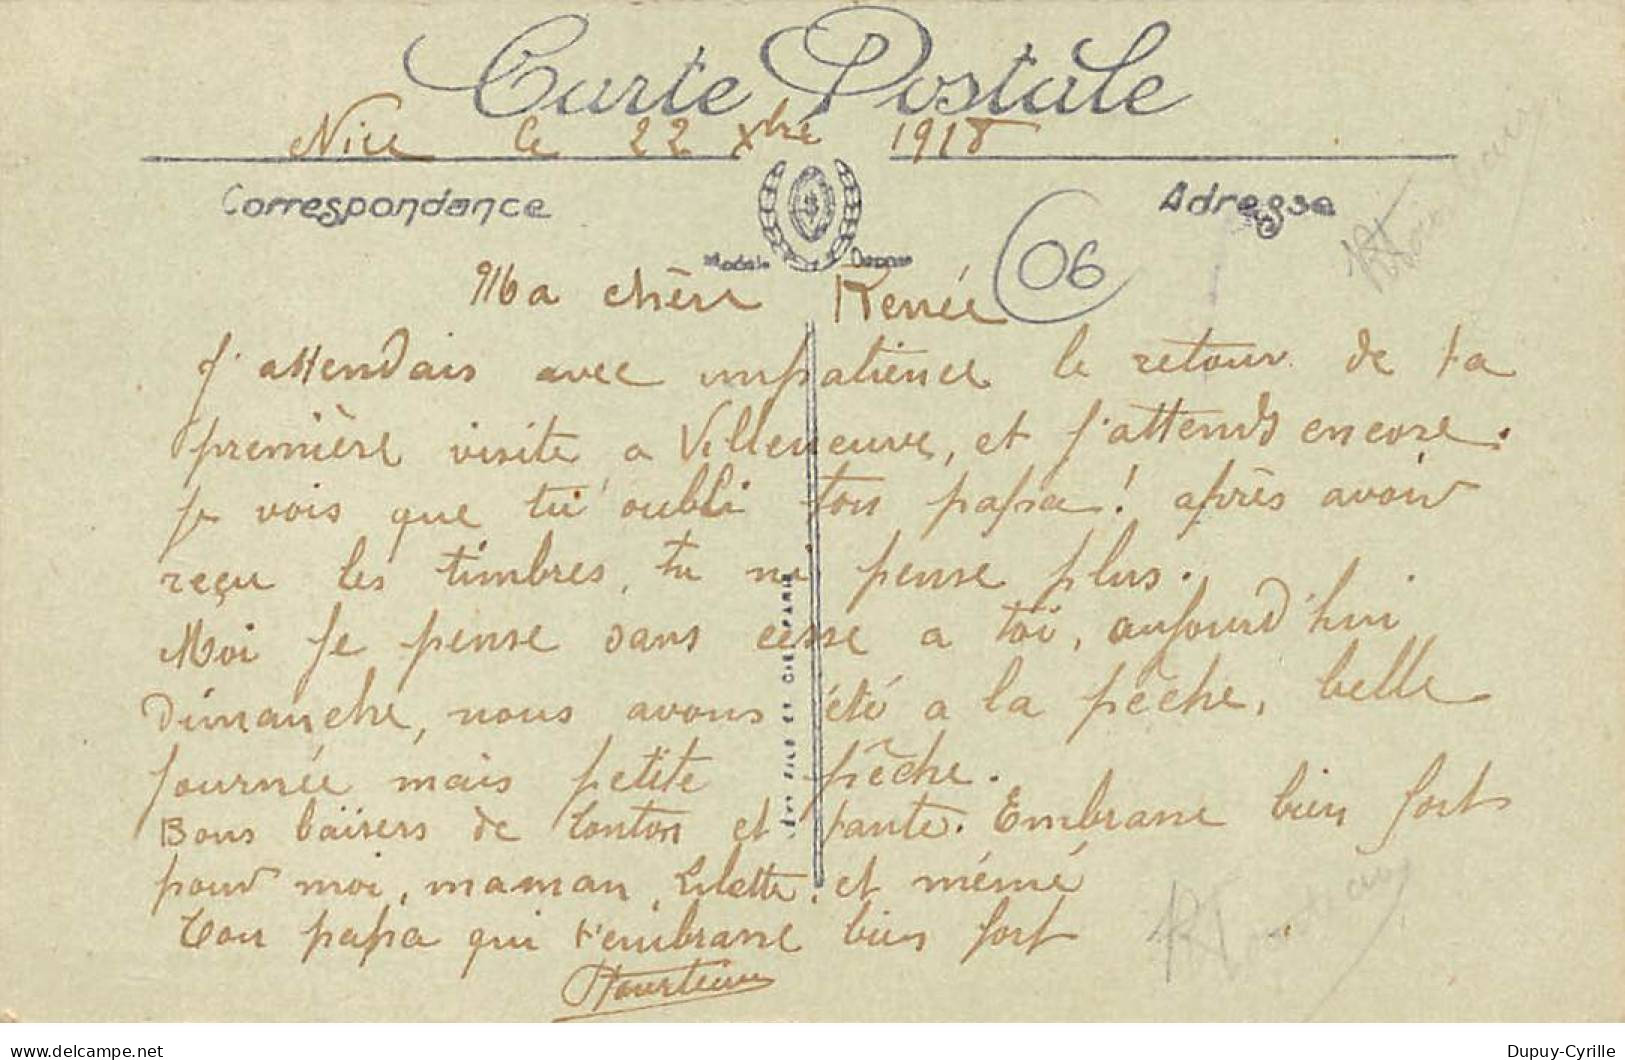 Carte Postale
Nice le 22 Xbre 1918
Correspondance
Adresse
Modèle Déposé
06
Ma chère Renée
J'attendais avec impatience le retour de ta
première visite a Villeneuve, et j'attends encore.
Je vois que tu oubli ton papa! après avoir
reçu les timbres, tu ne pense plus.
Moi je pense sans cesse a toi, aujourd'hui
Dimanche, nous avons été a la pêche, belle
journée mais petite pêche.
Bons baisers de tonton et tante. Embrasse bien fort
pour moi, maman, Lilette, et mémé
Ton papa qui t'embrasse bien fort
FILS ET CIE PARIS
delcampe.net
Dupuy-Cyrille